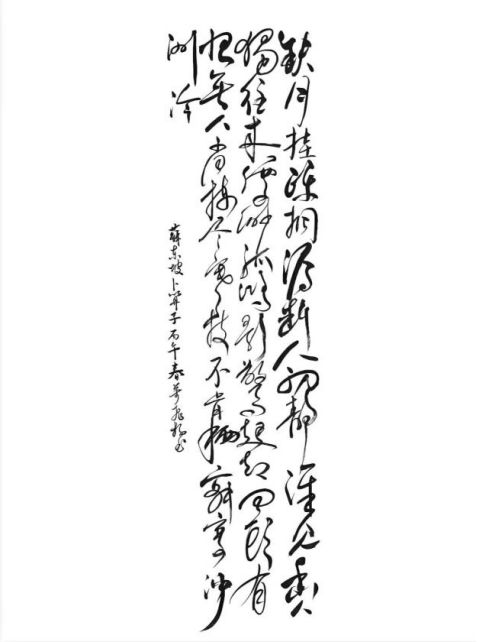 缺月挂疏桐漏断人初静谁见幽人
獨往来缥缈孤鸿影驚起却回头有
恨無人省揀尽寒枝不肯栖寂寞沙
洲冷
蘇东坡卜算子丙午春书